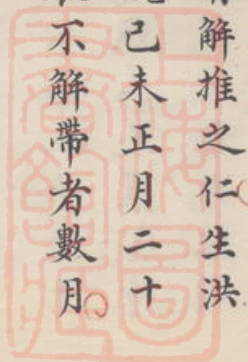 解推之仁生洪
己未正月二十
不解帶者數月